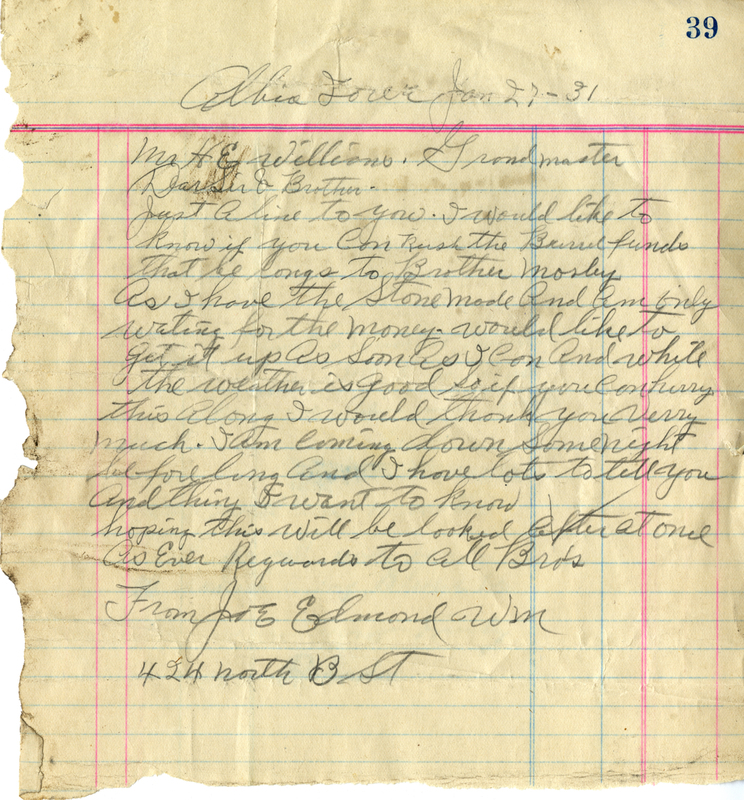 39
Albia Iowa Jan 27-31
Mr H E Williams. Grand master
Dar Sir & Brother.
Just a line to you. I would like to
know if you Con Rush the Burrel funds
that be longs to Brother Mosby
As I have the Stone made And Am only
wating for the money. would like to
get it up As Soon As I Con And while
the weather is good So if you Con hurry
this Along I would thank you verry
much. I Am Coming down Some night
be fore long And I have lots to tell you
And thing I want to know
hoping this will be looked after at once
As Ever Regwards to All Bro's
From Joe Edmond WM
424 north B St